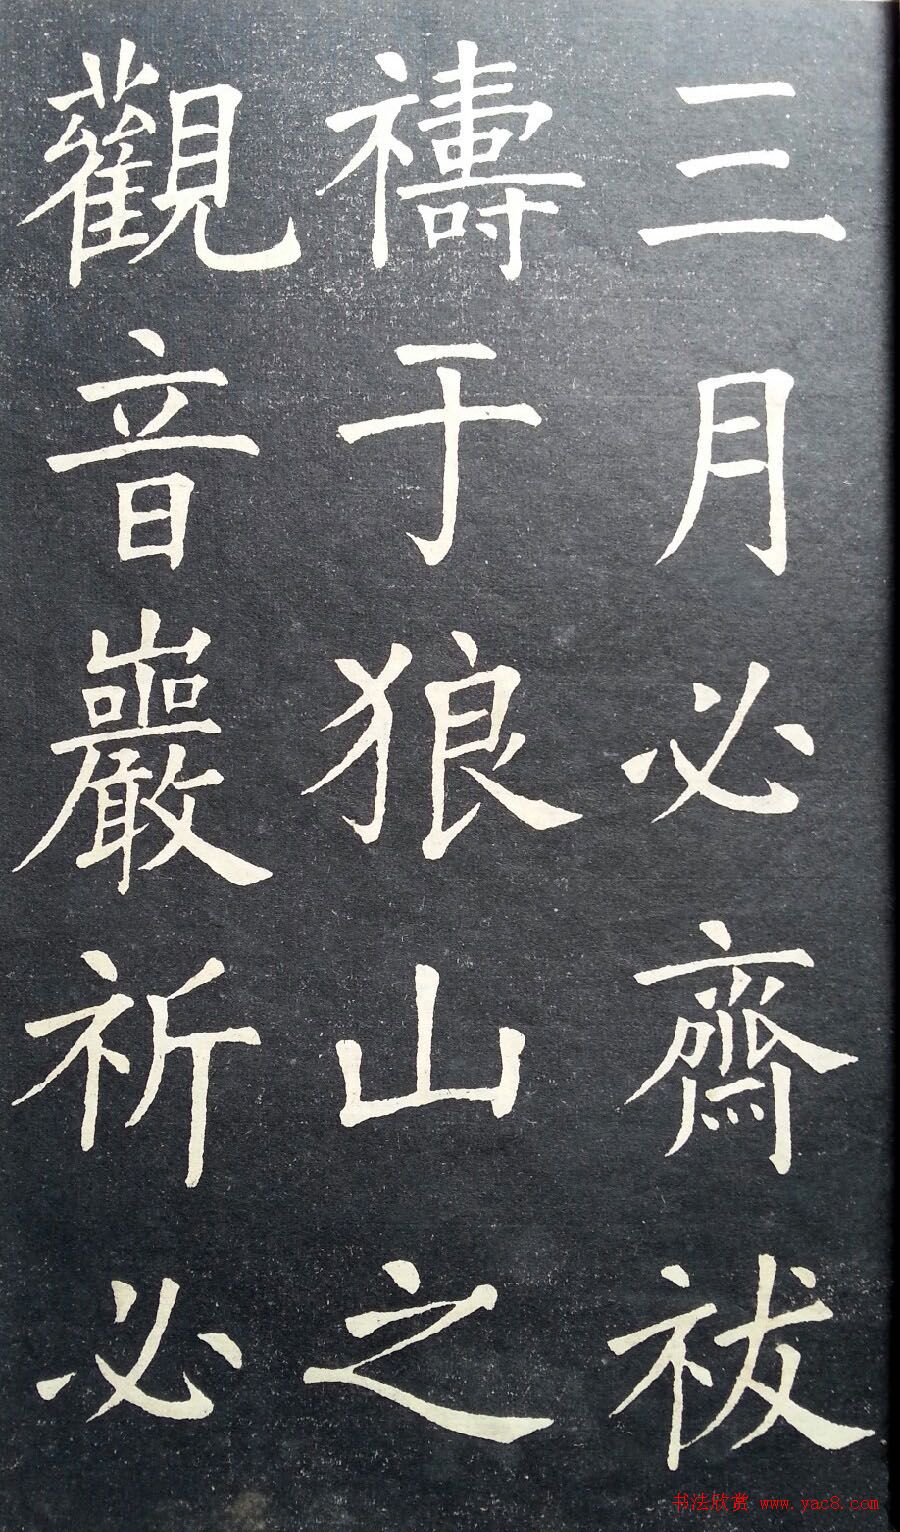 三月必齋祓
禱于狼山之
觀音巖祈必
书法欣赏 www.yac8.com